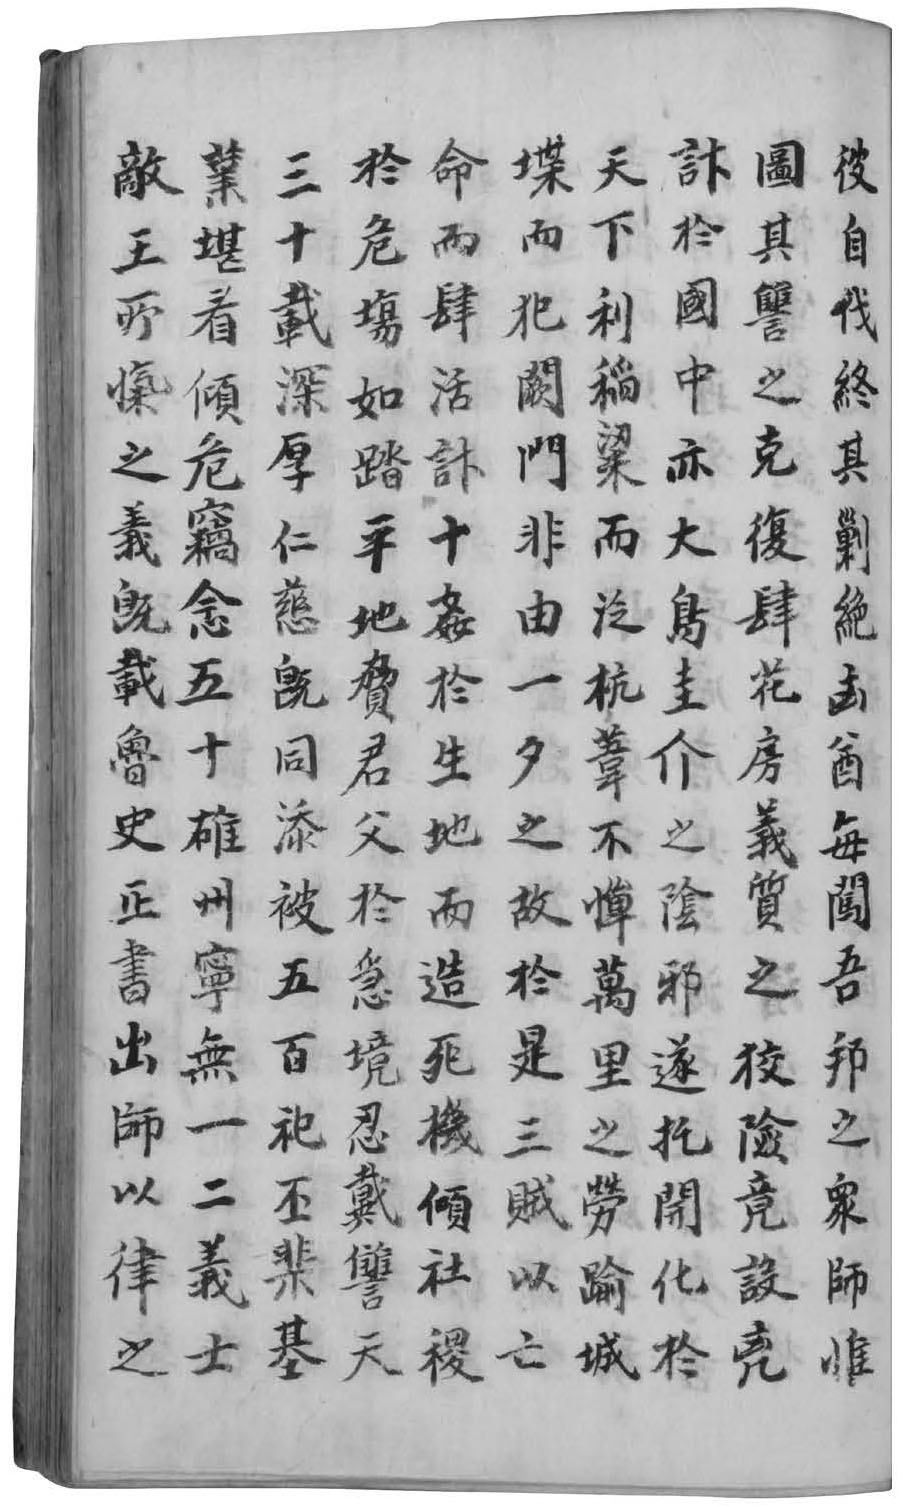 彼自伐終其剿絶凾酋每闖吾邦之衆師惟
圖其讐之克復肆花房義質之狡險竟設兇
計於國中亦大鳥圭介之陰邪遂托開化於
天下利稻粱而泛杭葦不憚萬里之勞踰城
堞而犯闕門非由一夕之故於是三賊以亡
命而肆活計十姦於生地而造死機傾社稷
於危塲如踏平地賚君父於急境忍戴讐天
三十載深厚仁慈旣同添被五百祀丕棐基
業堪看傾危竊念五十雄州寧無一二義士
敵王所愾之義旣載魯史正書出師以律之